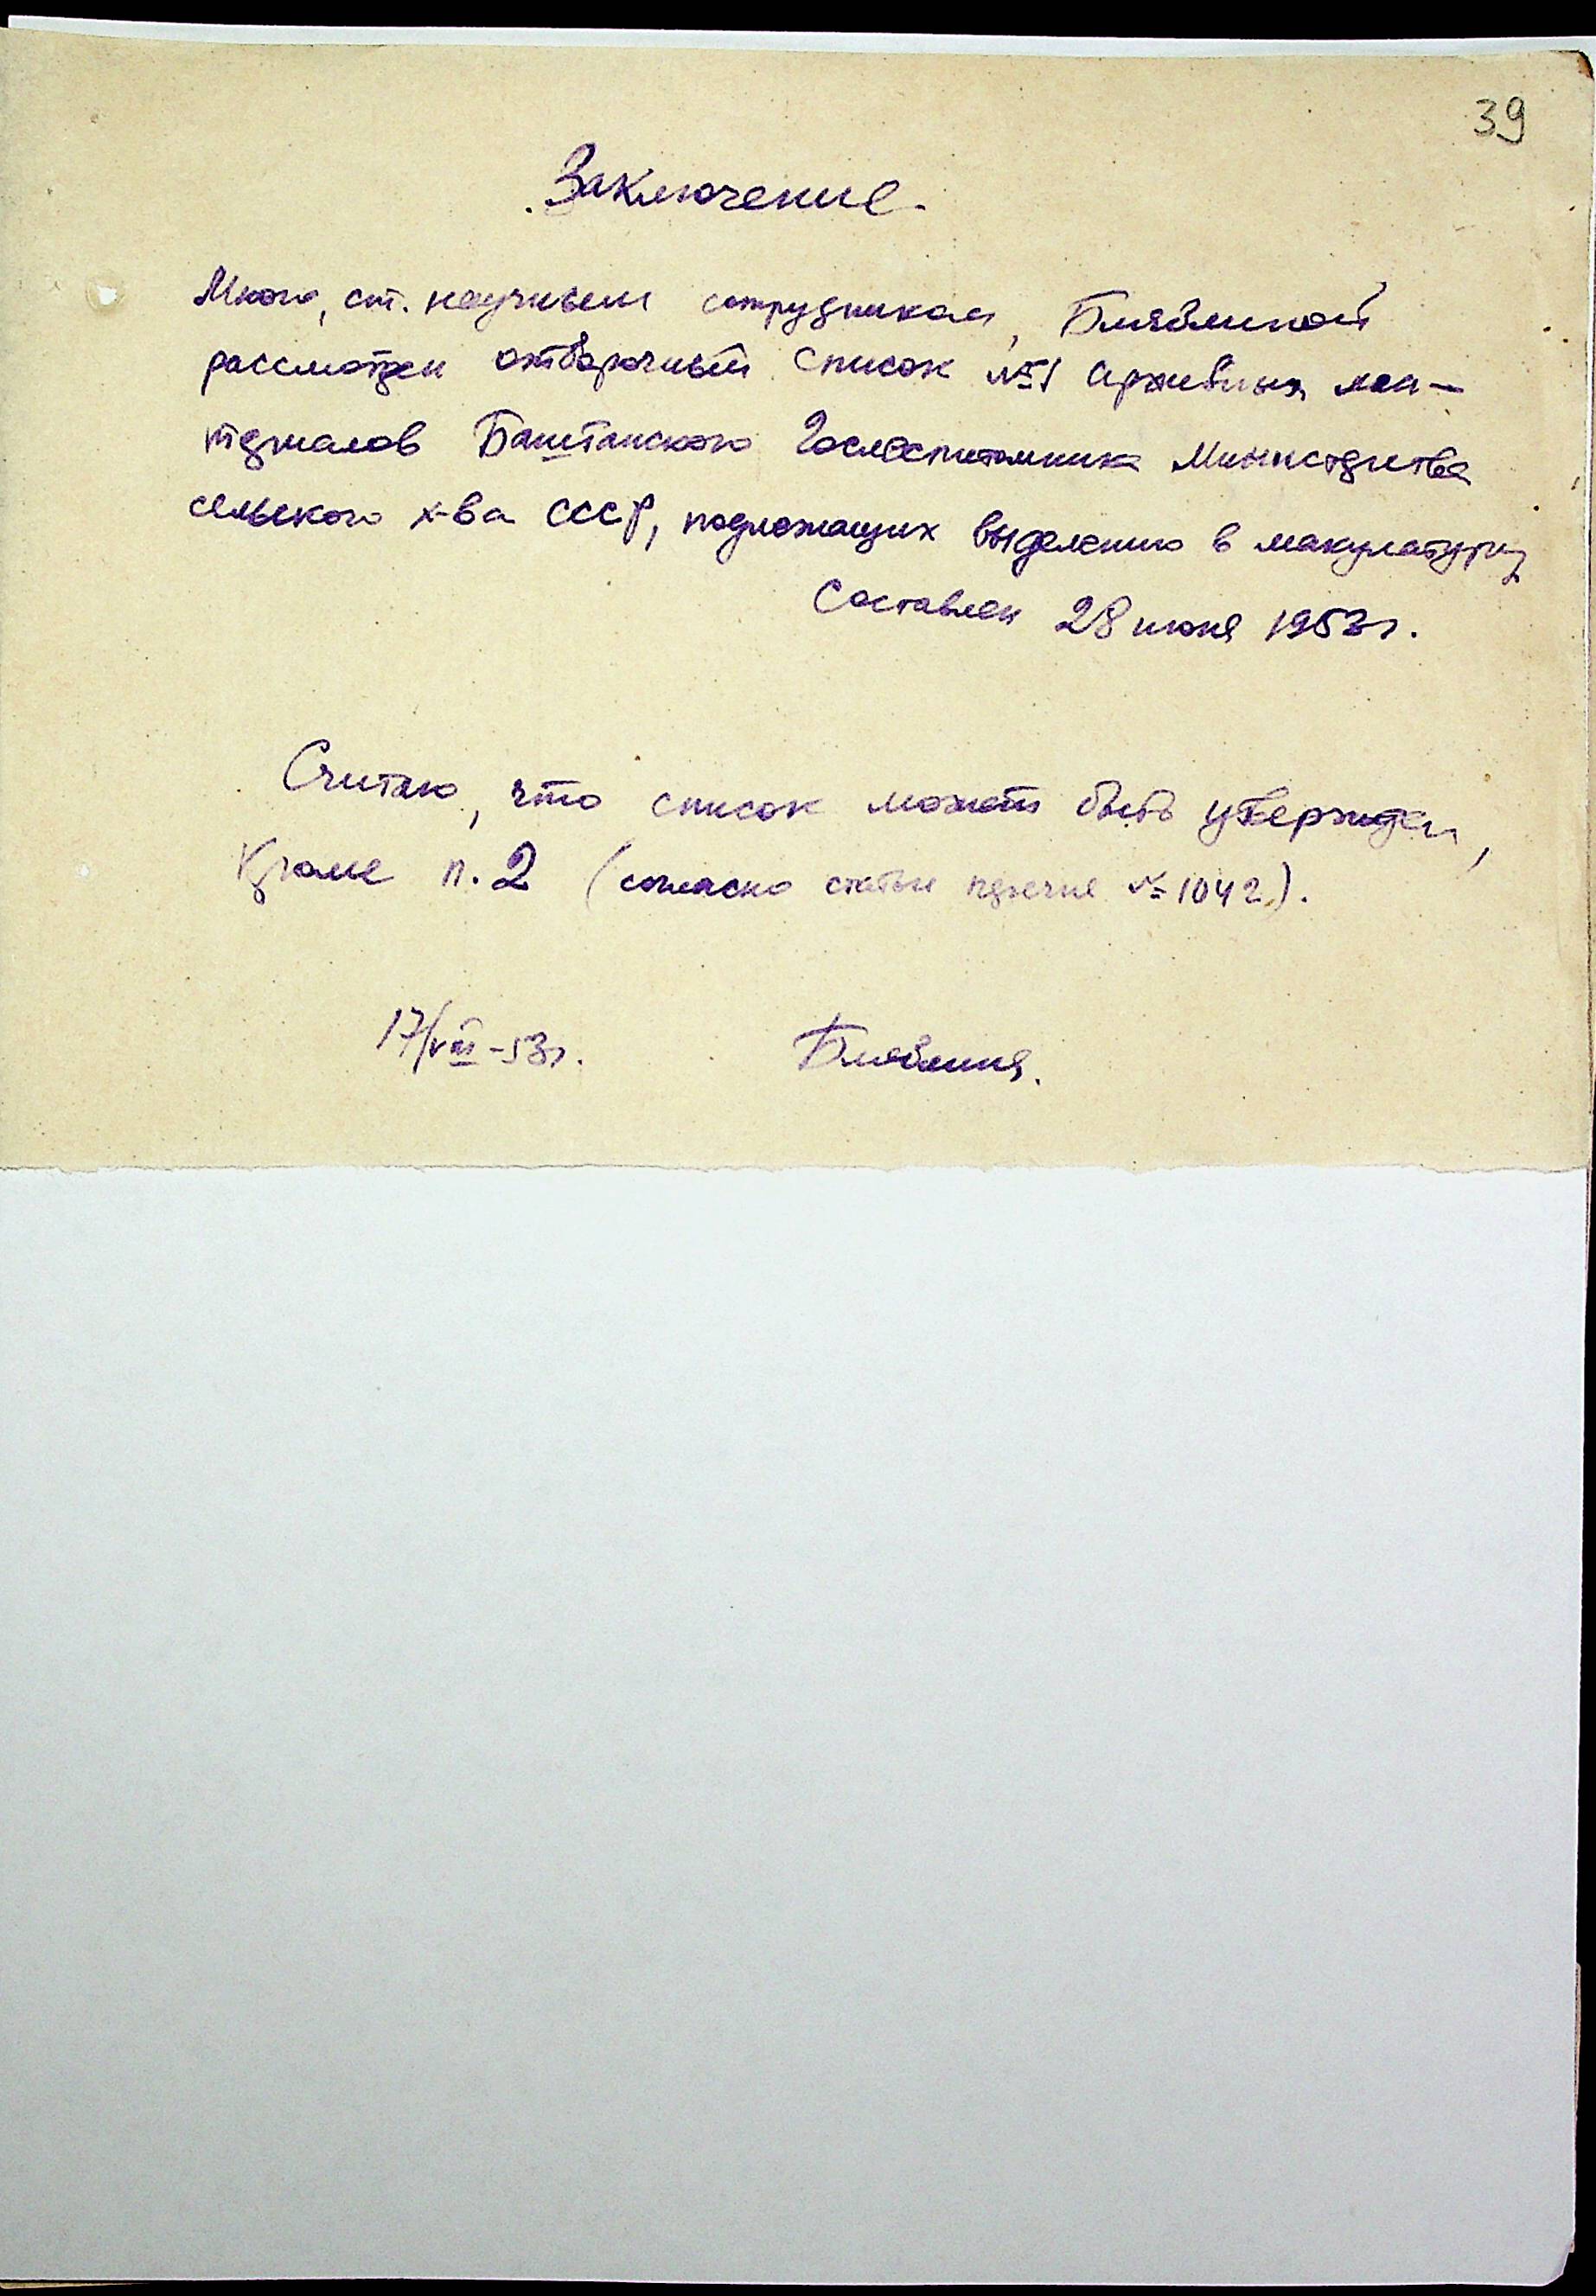 39
Заключение.
Мною, ст. научным сотрудником, Блявиной
рассмотрен отборочный список №1 архивных ма-
териалов Баштанского Гослеспитомника Министерства
сельского х-ва СССР, подлежащих выделению в макулатуру
Составлен 28 июня 1953г.
Считаю, что список может быть утвержден,
кроме п. 2 (согласно статьи перечня № 1042).
17/VIII-53г.